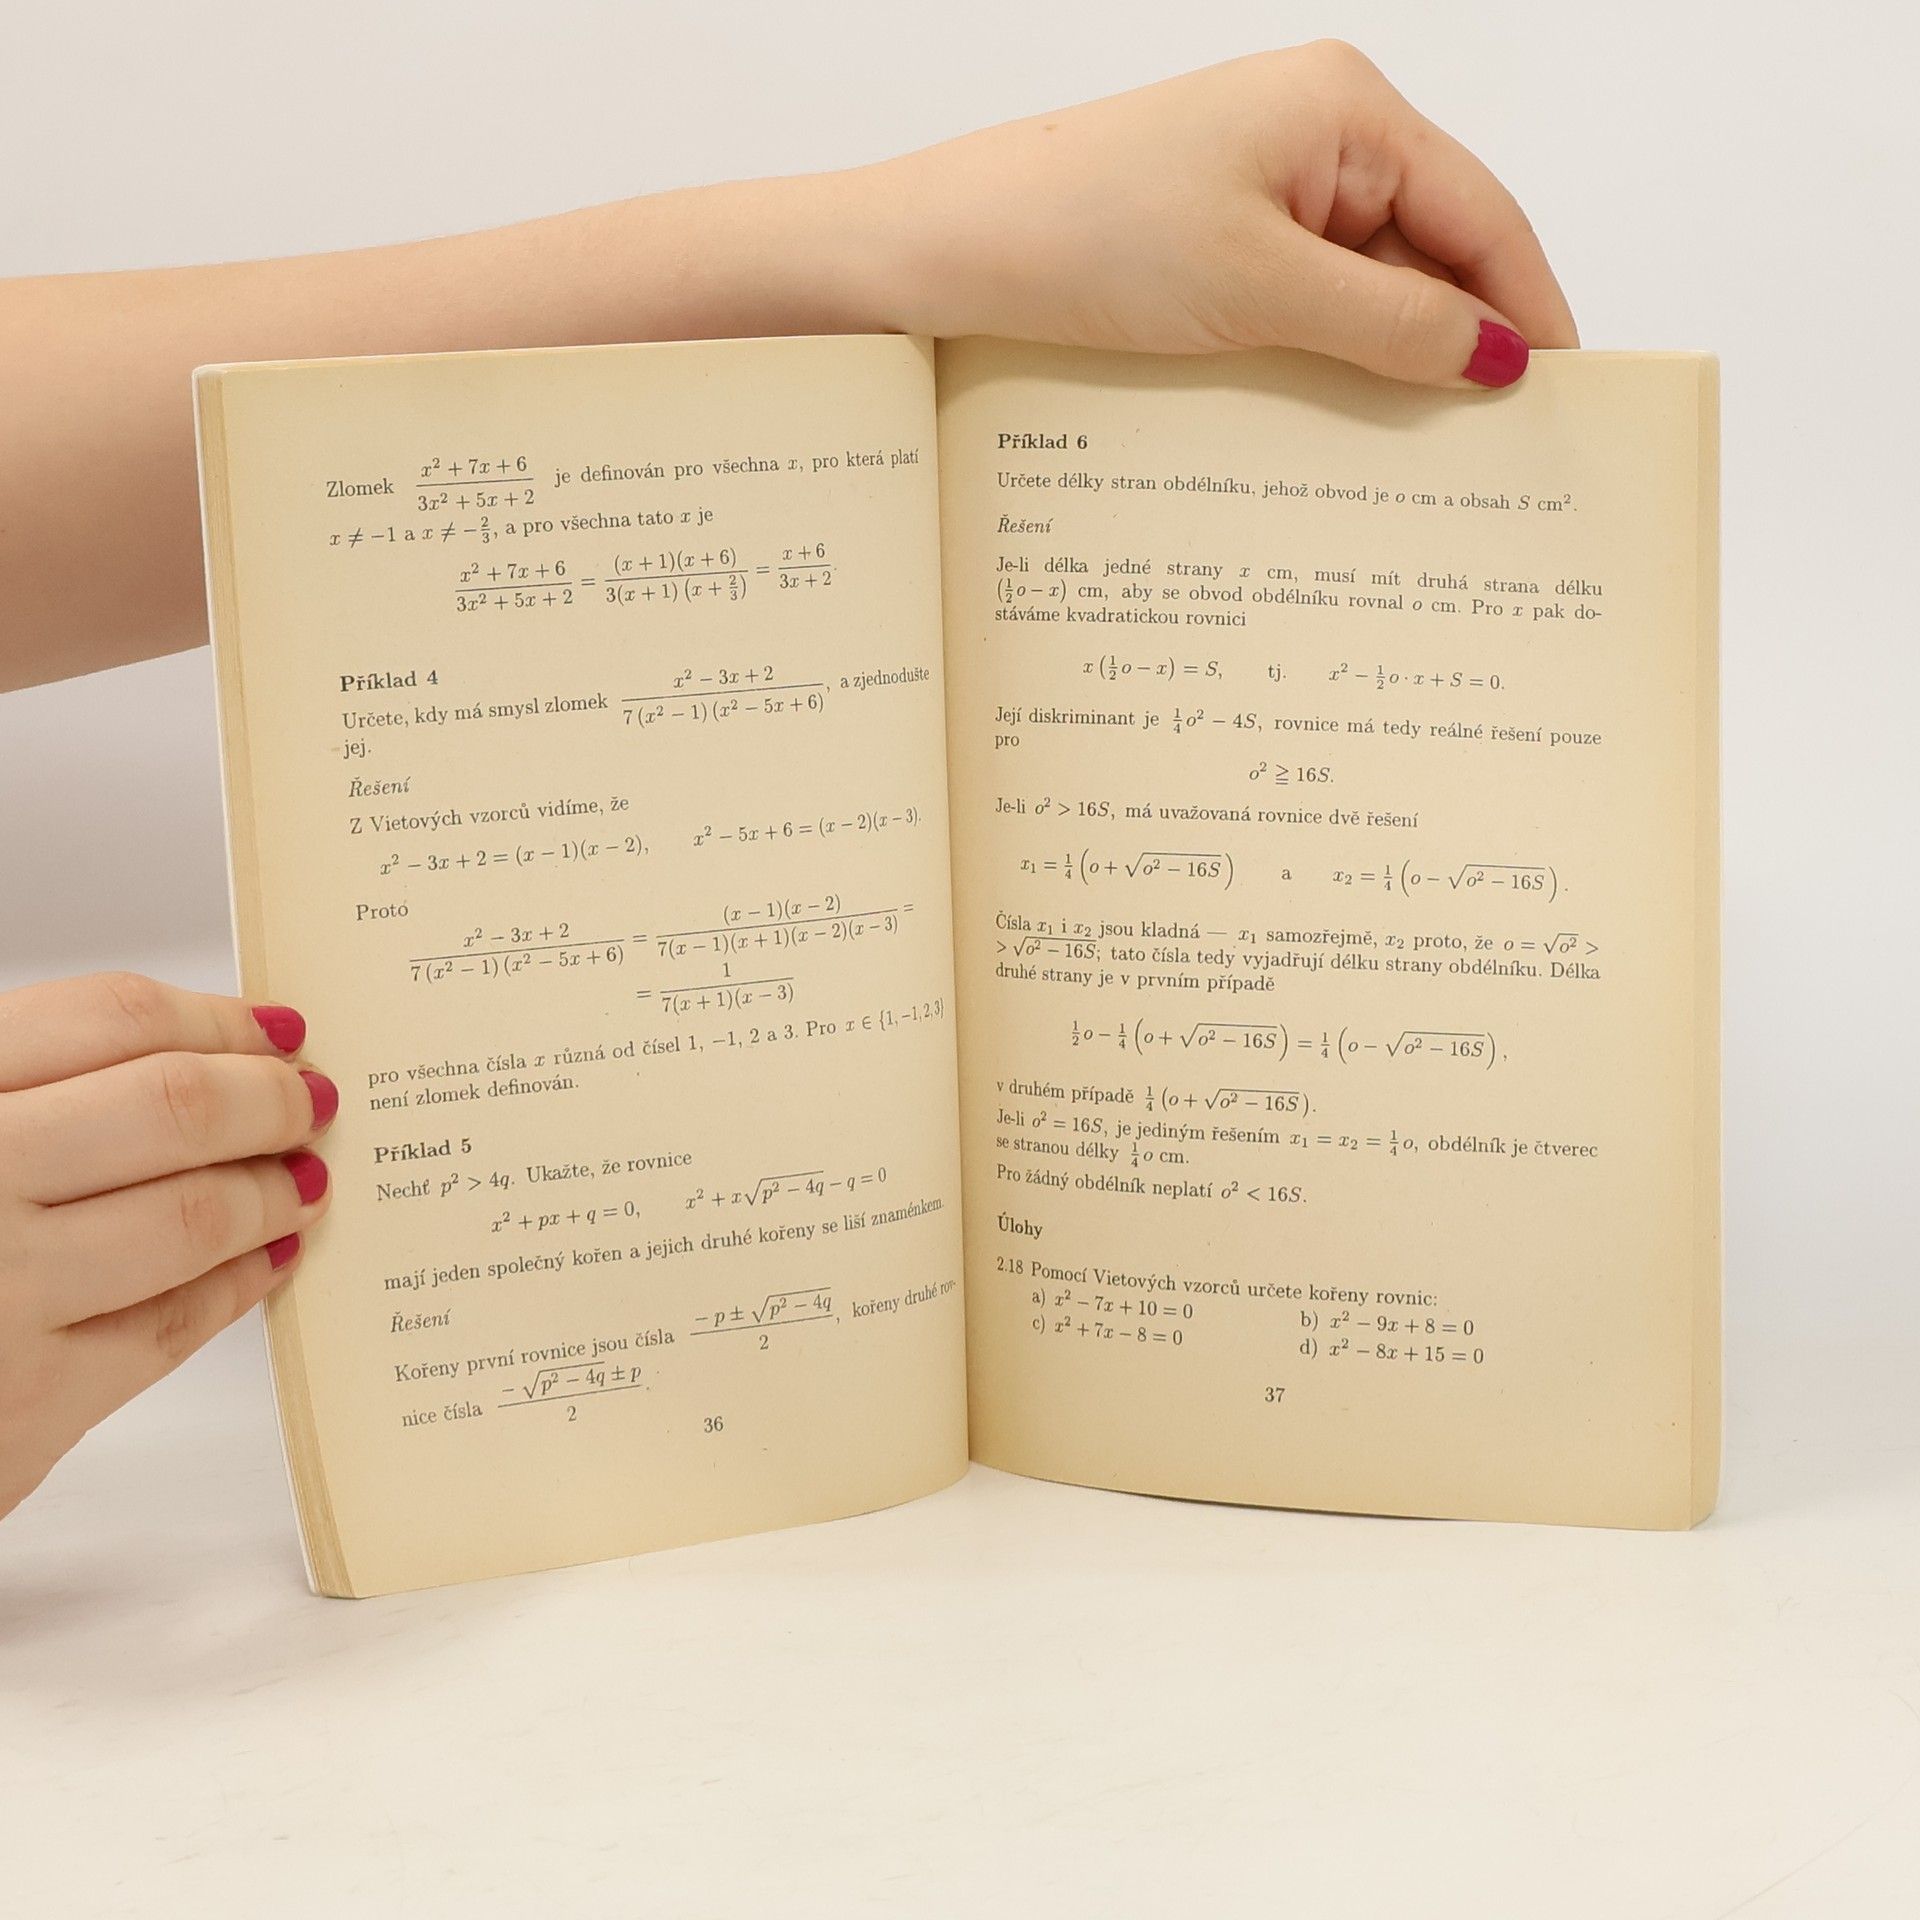 Zlomek \frac{x^2 + 7x + 6}{3x^2 + 5x + 2} je definován pro všechna x, pro která platí
x ≠ −1 a x ≠ −\frac{2}{3}, a pro všechna tato x je
\frac{x^2 + 7x + 6}{3x^2 + 5x + 2} = \frac{(x + 1)(x + 6)}{3(x + 1)(x + \frac{2}{3})} = \frac{x + 6}{3x + 2}.
Příklad 4
Určete, kdy má smysl zlomek \frac{x^2 − 3x + 2}{7(x^2 − 1)(x^2 − 5x + 6)}, a zjednodušte
jej.
Řešení
Z Vietových vzorců vidíme, že
x^2 − 3x + 2 = (x − 1)(x − 2), x^2 − 5x + 6 = (x − 2)(x − 3).
Proto
\frac{x^2 − 3x + 2}{7(x^2 − 1)(x^2 − 5x + 6)} = \frac{(x − 1)(x − 2)}{7(x − 1)(x + 1)(x − 2)(x − 3)} =
= \frac{1}{7(x + 1)(x − 3)}
pro všechna čísla x různá od čísel 1, −1, 2 a 3. Pro x ∈ {1, −1, 2, 3}
není zlomek definován.
Příklad 5
Nechť p^2 > 4q. Ukažte, že rovnice
x^2 + px + q = 0, x^2 + x√(p^2 − 4q) − q = 0
mají jeden společný kořen a jejich druhé kořeny se liší znaménkem.
Řešení
Kořeny první rovnice jsou čísla \frac{−p ± √(p^2 − 4q)}{2}, kořeny druhé rov-
nice čísla \frac{−√(p^2 − 4q) ± p}{2}.
36
Příklad 6
Určete délky stran obdélníku, jehož obvod je o cm a obsah S cm^2.
Řešení
Je-li délka jedné strany x cm, musí mít druhá strana délku
(\frac{1}{2}o − x) cm, aby se obvod obdélníku rovnal o cm. Pro x pak do-
stáváme kvadratickou rovnici
x(\frac{1}{2}o − x) = S, tj. x^2 − \frac{1}{2}o · x + S = 0.
Její diskriminant je \frac{1}{4}o^2 − 4S, rovnice má tedy reálné řešení pouze
pro
o^2 ≧ 16S.
Je-li o^2 > 16S, má uvažovaná rovnice dvě řešení
x_1 = \frac{1}{4}(o + √(o^2 − 16S)) a x_2 = \frac{1}{4}(o − √(o^2 − 16S)).
Čísla x_1 i x_2 jsou kladná — x_1 samozřejmě, x_2 proto, že o = √(o^2) >
> √(o^2 − 16S); tato čísla tedy vyjadřují délku strany obdélníku. Délka
druhé strany je v prvním případě
\frac{1}{2}o − \frac{1}{4}(o + √(o^2 − 16S)) = \frac{1}{4}(o − √(o^2 − 16S)),
v druhém případě \frac{1}{4}(o + √(o^2 − 16S)).
Je-li o^2 = 16S, je jediným řešením x_1 = x_2 = \frac{1}{4}o, obdélník je čtverec
se stranou délky \frac{1}{4}o cm.
Pro žádný obdélník neplatí o^2 < 16S.
Úlohy
2.18 Pomocí Vietových vzorců určete kořeny rovnic:
a) x^2 − 7x + 10 = 0 b) x^2 − 9x + 8 = 0
c) x^2 + 7x − 8 = 0 d) x^2 − 8x + 15 = 0
37